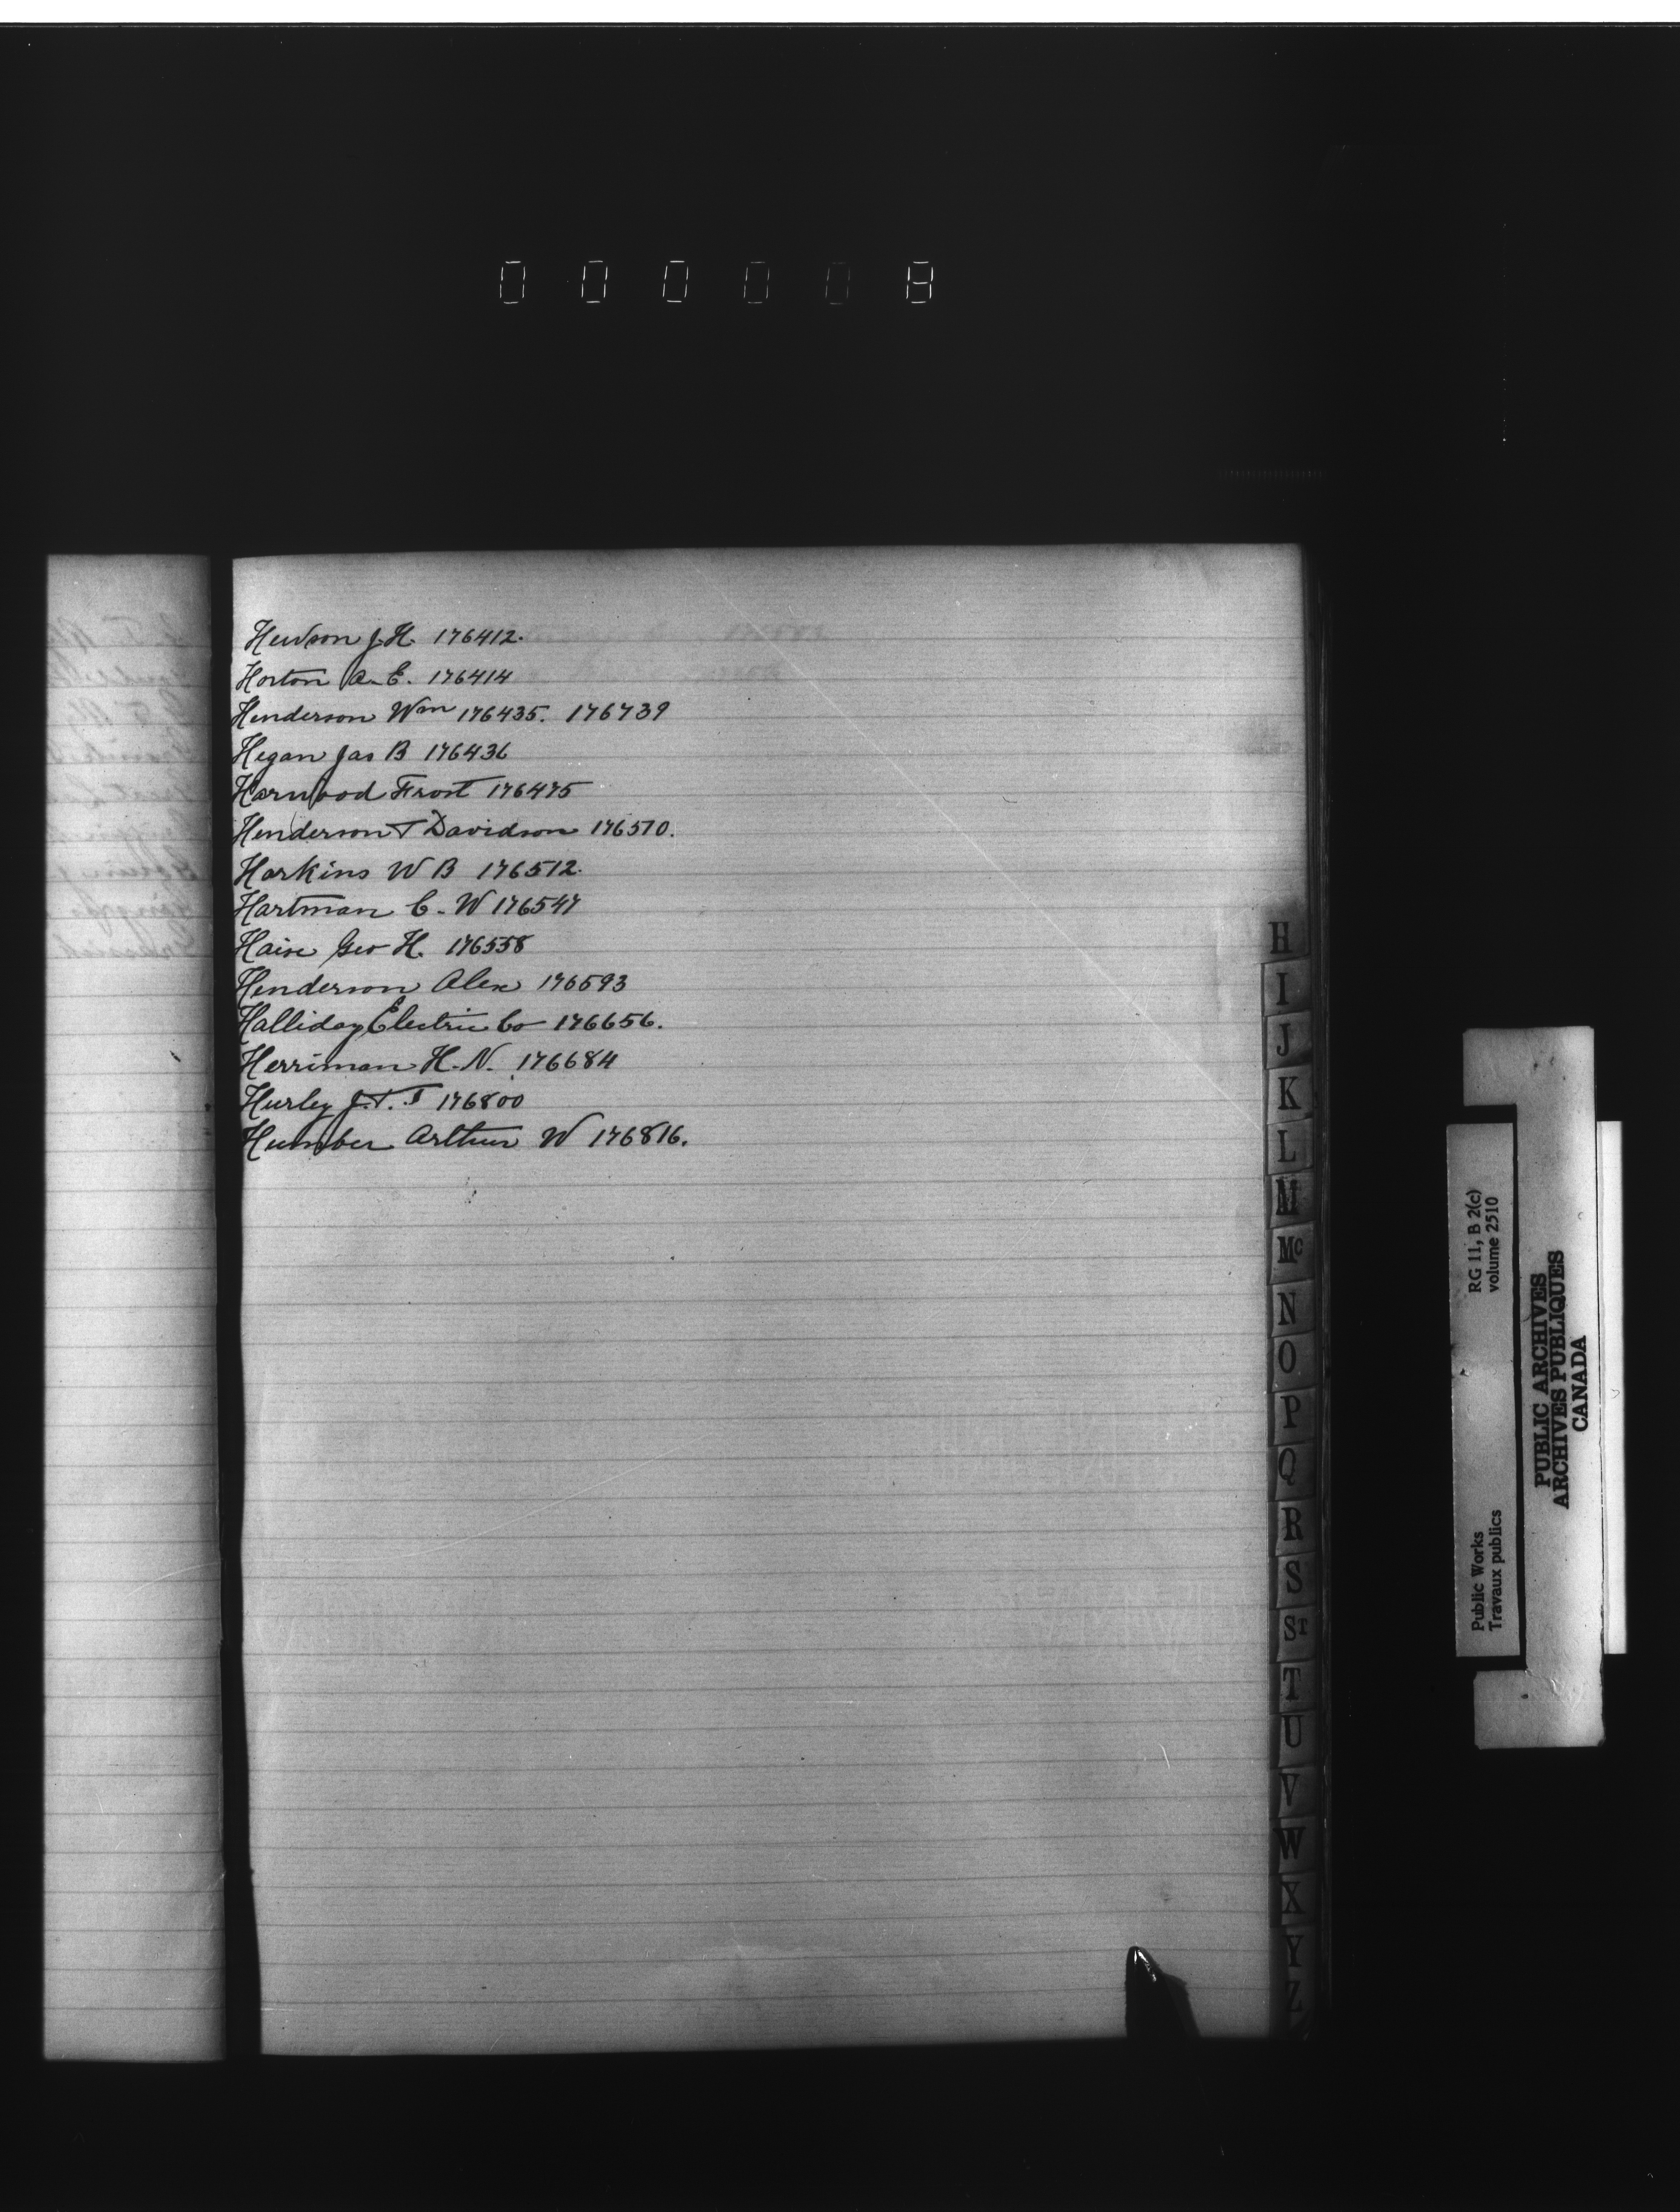 000008
Hewson J. H. 176412.
Horton A. E. 176414
Henderson Wm 176435. 176739
Hegan Jas B 176436
Harwood Frost 176475
Henderson & Davidson 176510.
Harkins W B 176512.
Hartman C. W 176547
Geo H. 176558
Henderson Alex 176593
Halliday Electric Co 176656.
Herriman H. N. 176684
Hurley J. T. 176800
Humber Arthur W 176816.
H
I
J
K
L
M
Mc
N
O
P
Q
R
S
ST
T
U
V
W
X
Y
Z
Public Works RG 11, B 2(c)
Travaux publics volume 2510
PUBLIC ARCHIVES
ARCHIVES PUBLIQUES
CANADA